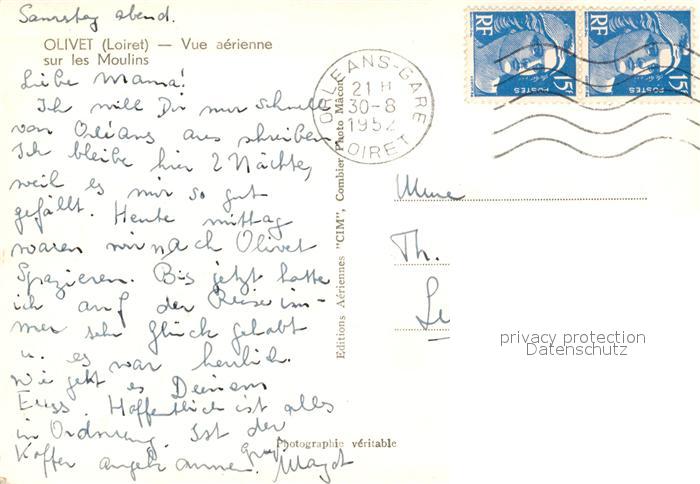 Samstag abend.
OLIVET (Loiret) — Vue aérienne
sur les Moulins
Liebe Mama!
Ich will Dir nur schnell
von Orléans aus schreiben
Ich bleibe hier 2 Nächte,
weil es mir so gut
gefällt. Heute mittag
waren wir nach Olivet
spazieren. Bis jetzt hatte
ich auf der Reise im-
mer sehr Glück gehabt
u. es war herrlich.
Wie geht es Deinem
Fuss. Hoffentlich ist alles
in Ordnung. Ist der
Koffer angekommen. Gruß
Margot
Editions Aériennes "CIM", Combier Photo Mâcon
Photographie véritable
ORLEANS-GARE
21 H
30-8
1952
LOIRET
RF
15F
POSTES
RF
15F
POSTES
Mme
Th.
Le
privacy protection
Datenschutz